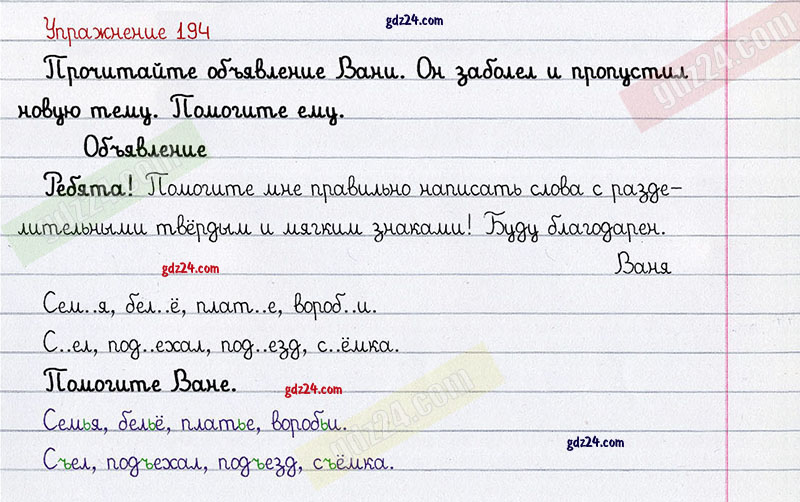 gdz24.com
Упражнение 194
Прочитайте объявление Вани. Он заболел и пропустил
новую тему. Помогите ему.
Объявление
Ребята! Помогите мне правильно написать слова с разде-
лительными твёрдым и мягким знаками! Буду благодарен.
gdz24.com
Ваня
Сем..я, бел..ё, плат..е, вороб..и.
С..ел, под..ехал, под..езд, с..ёмка.
Помогите Ване.
gdz24.com
Семья, бельё, платье, воробьи.
Съел, подъехал, подъезд, съёмка.
gdz24.com
gdz24.com
gdz24.com
gdz24.com